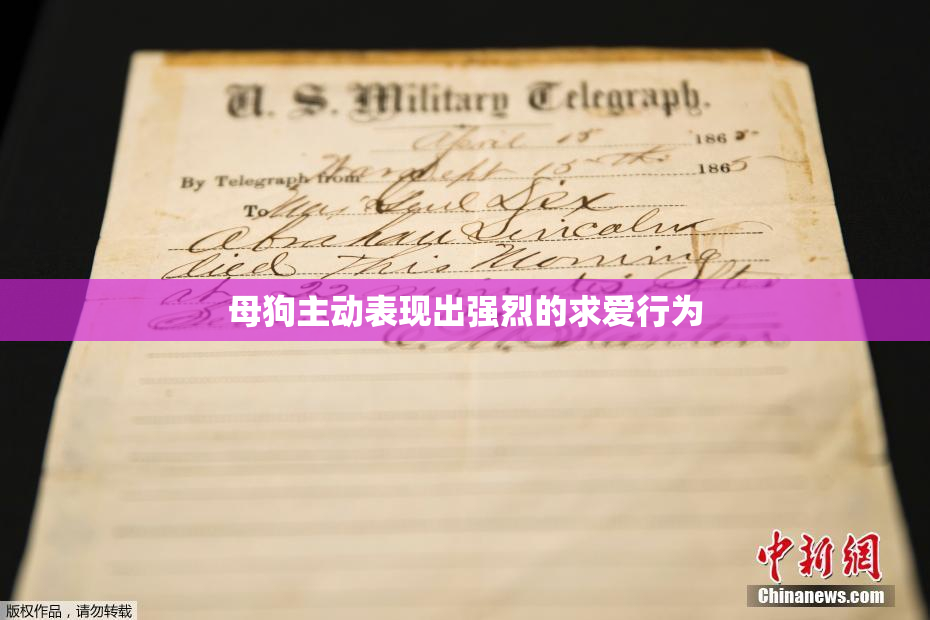 U. S. Military Telegraph.
April 15 1865
By Telegraph from War Dept 15th 1865
To Maj Genl Dix
Abraham Lincoln
died This Morning
at 22 minutes after
母狗主动表现出强烈的求爱行为
中新网
Chinanews.com
版权作品，请勿转载